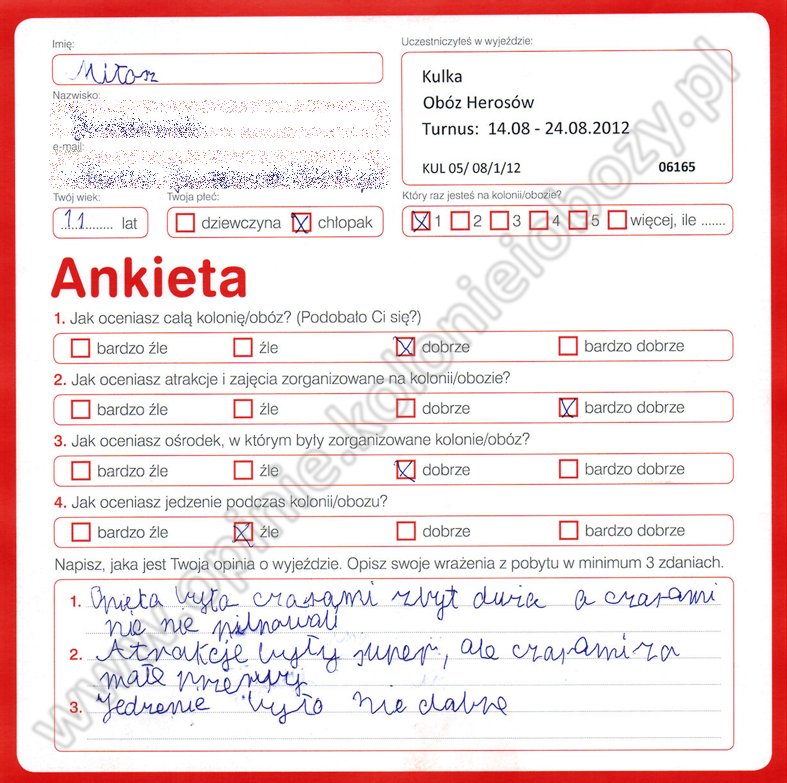 Imię:
Miłosz
Uczestniczyłeś w wyjeździe:
Kulka
Obóz Herosów
Turnus: 14.08 - 24.08.2012
KUL 05/ 08/1/12 06165
Nazwisko:
e-mail:
Twój wiek:
11 lat
Twoja płeć:
dziewczyna chłopak
Który raz jesteś na kolonii/obozie?
1 2 3 4 5 więcej, ile .......
Ankieta
1. Jak oceniasz całą kolonię/obóz? (Podobało Ci się?)
bardzo źle źle dobrze bardzo dobrze
2. Jak oceniasz atrakcje i zajęcia zorganizowane na kolonii/obozie?
bardzo źle źle dobrze bardzo dobrze
3. Jak oceniasz ośrodek, w którym były zorganizowane kolonie/obóz?
bardzo źle źle dobrze bardzo dobrze
4. Jak oceniasz jedzenie podczas kolonii/obozu?
bardzo źle źle dobrze bardzo dobrze
Napisz, jaka jest Twoja opinia o wyjeździe. Opisz swoje wrażenia z pobytu w minimum 3 zdaniach.
1. Opieka była czasami zbyt duża a czasami
nic nie pilnowali
2. Atrakcje były super, ale czasami za
małe przerwy
3. Jedzenie było nie dobre
www.opinie.kolonieiobozy.pl